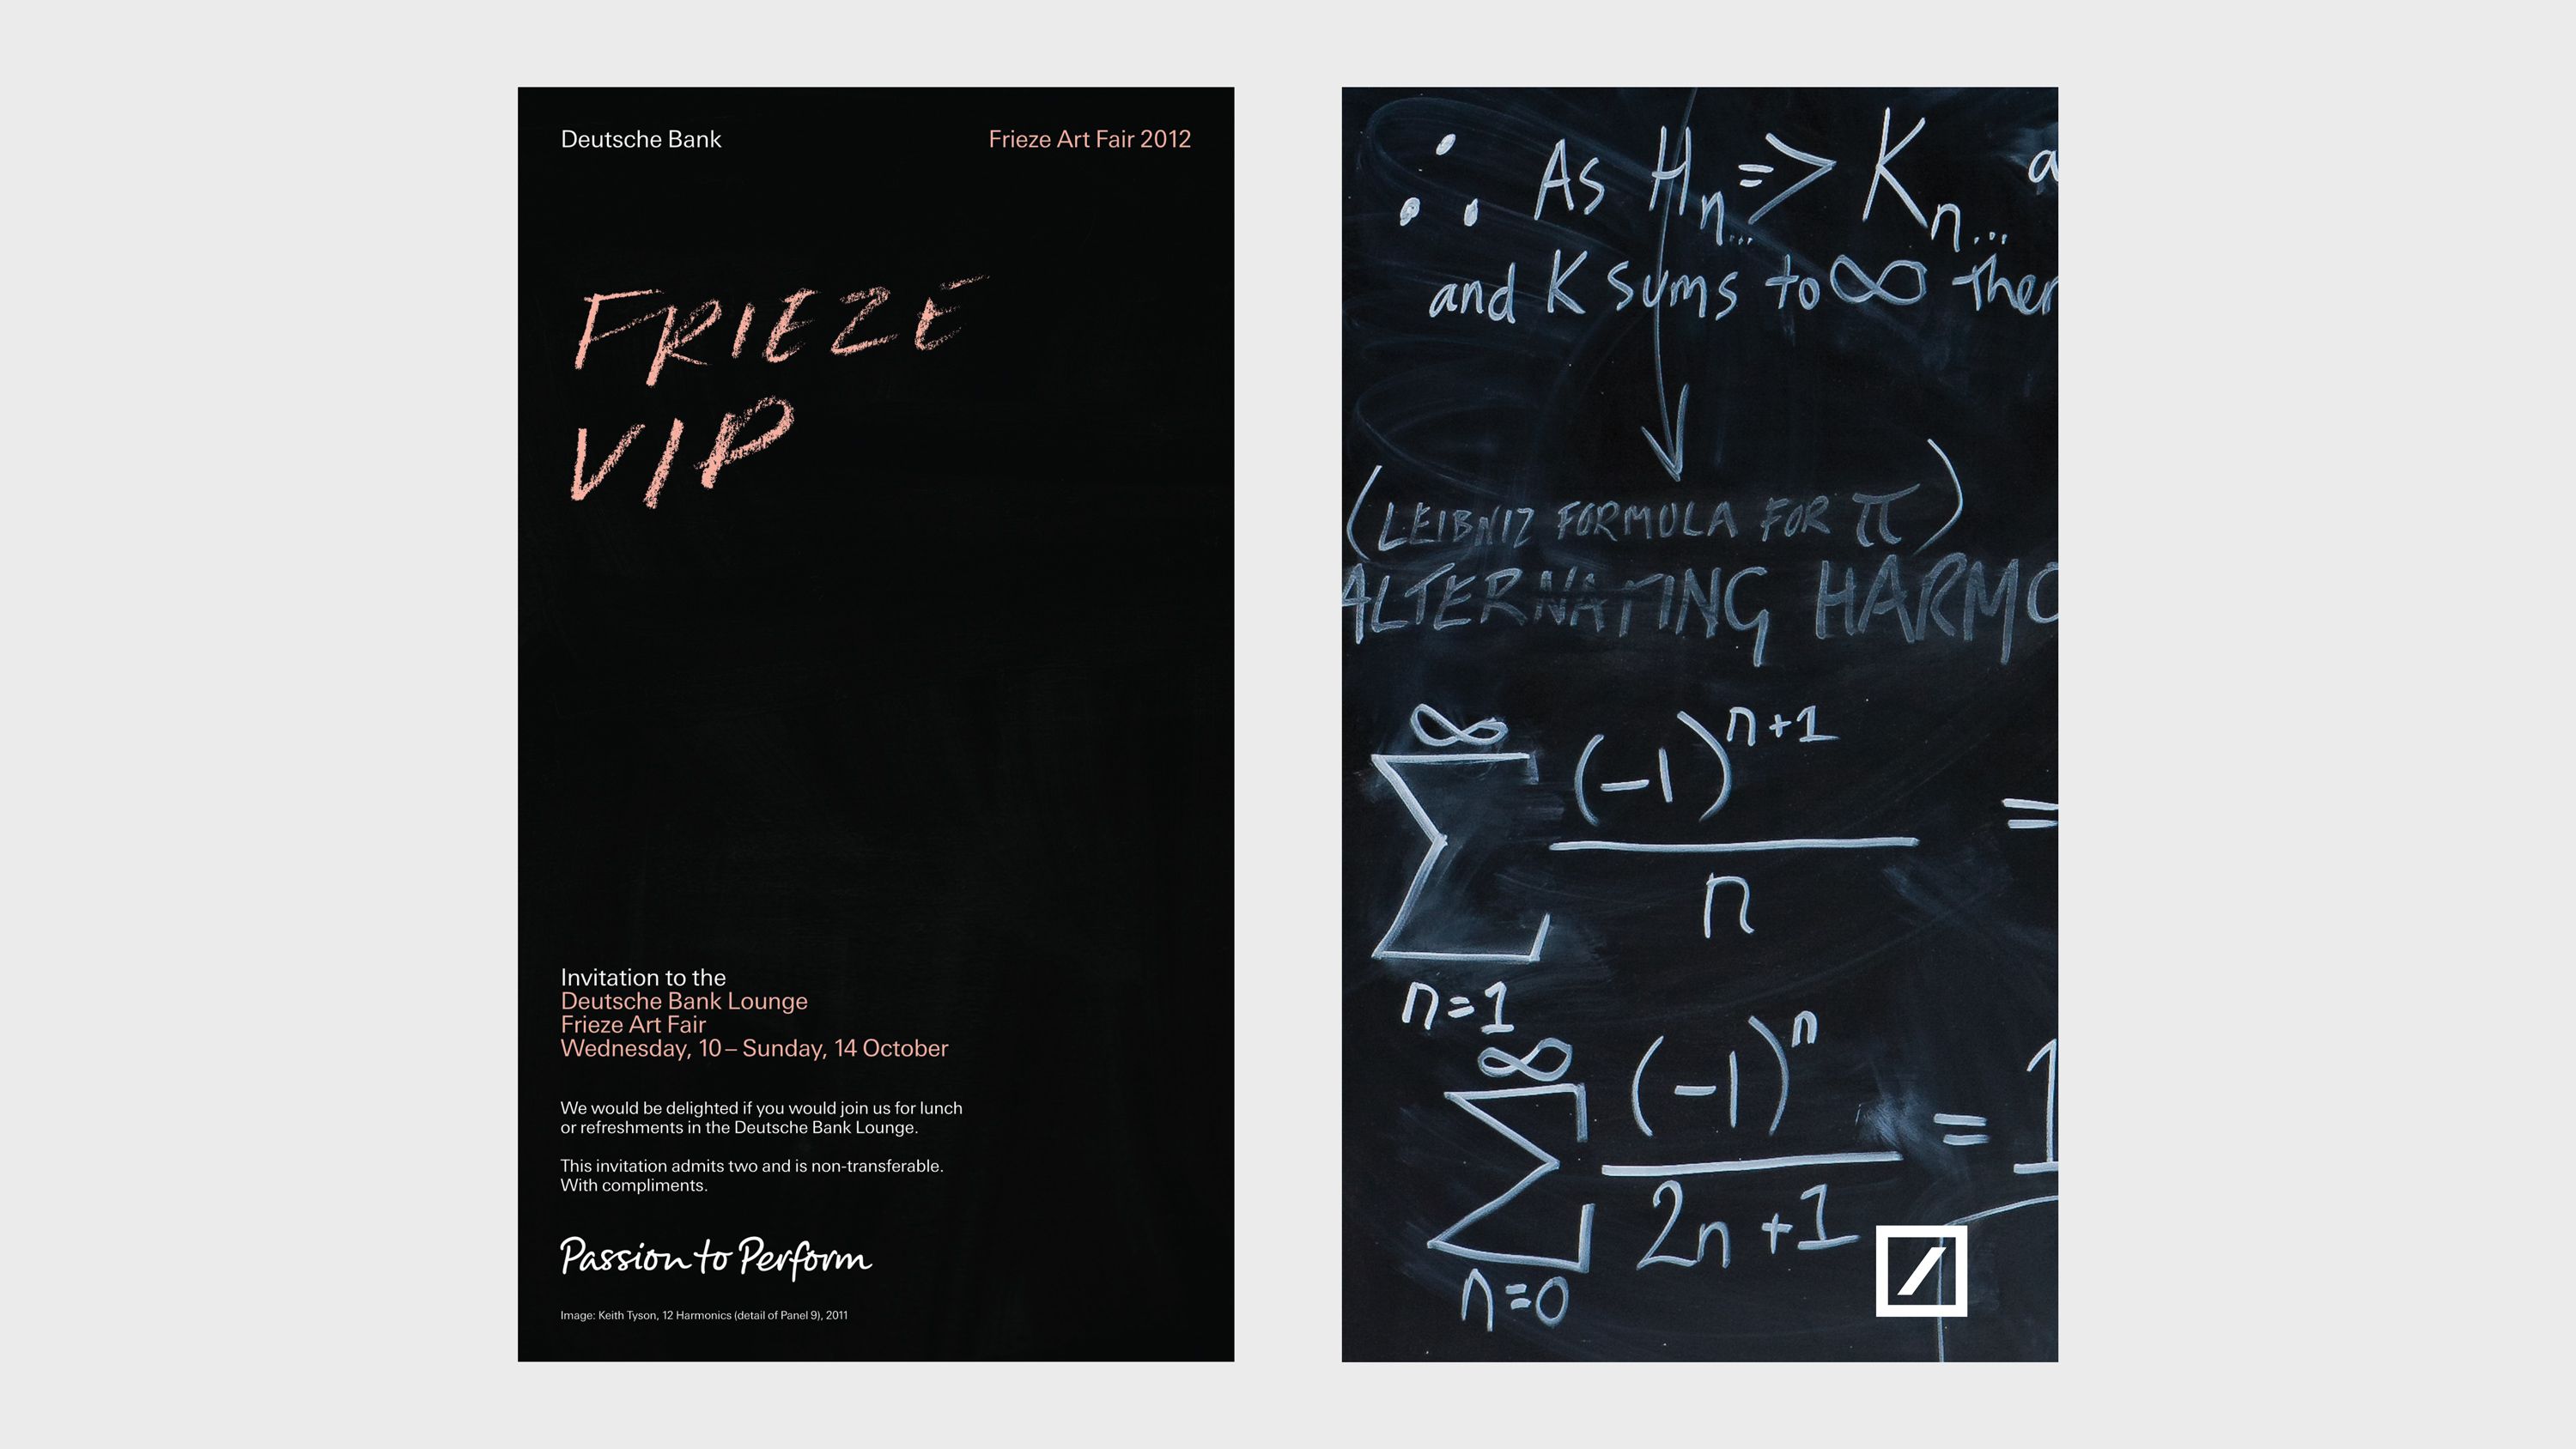 Deutsche Bank
Frieze Art Fair 2012
FRIEZE
VIP
Invitation to the
Deutsche Bank Lounge
Frieze Art Fair
Wednesday, 10 – Sunday, 14 October
We would be delighted if you would join us for lunch
or refreshments in the Deutsche Bank Lounge.
This invitation admits two and is non-transferable.
With compliments.
Passion to Perform
Image: Keith Tyson, 12 Harmonics (detail of Panel 9), 2011
∴ As Hn... => Kn... a
and K sums to ∞ ther
(LEIBNIZ FORMULA FOR π)
ALTERNATING HARMO
∞
(-1)^n+1
∑ =
n
n=1
∞
(-1)^n
∑ = 1
2n+1
n=0